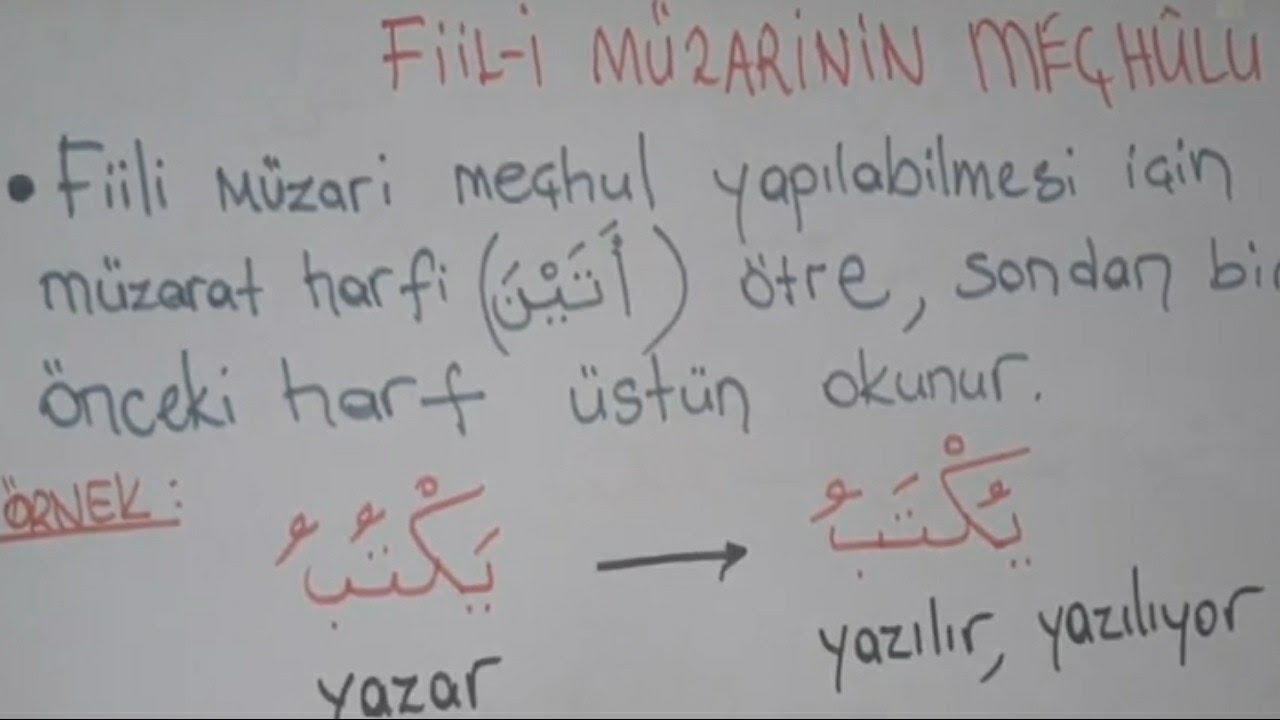 FiiL-i MÜZARiNiN MEÇHÛLU
• Fiili müzari meçhul yapılabilmesi için
müzarat harfi (أَتَيْنَ) ötre, sondan bir
önceki harf üstün okunur.
ÖRNEK: يَكْتُبُ → يُكْتَبُ
yazar yazılır, yazılıyor